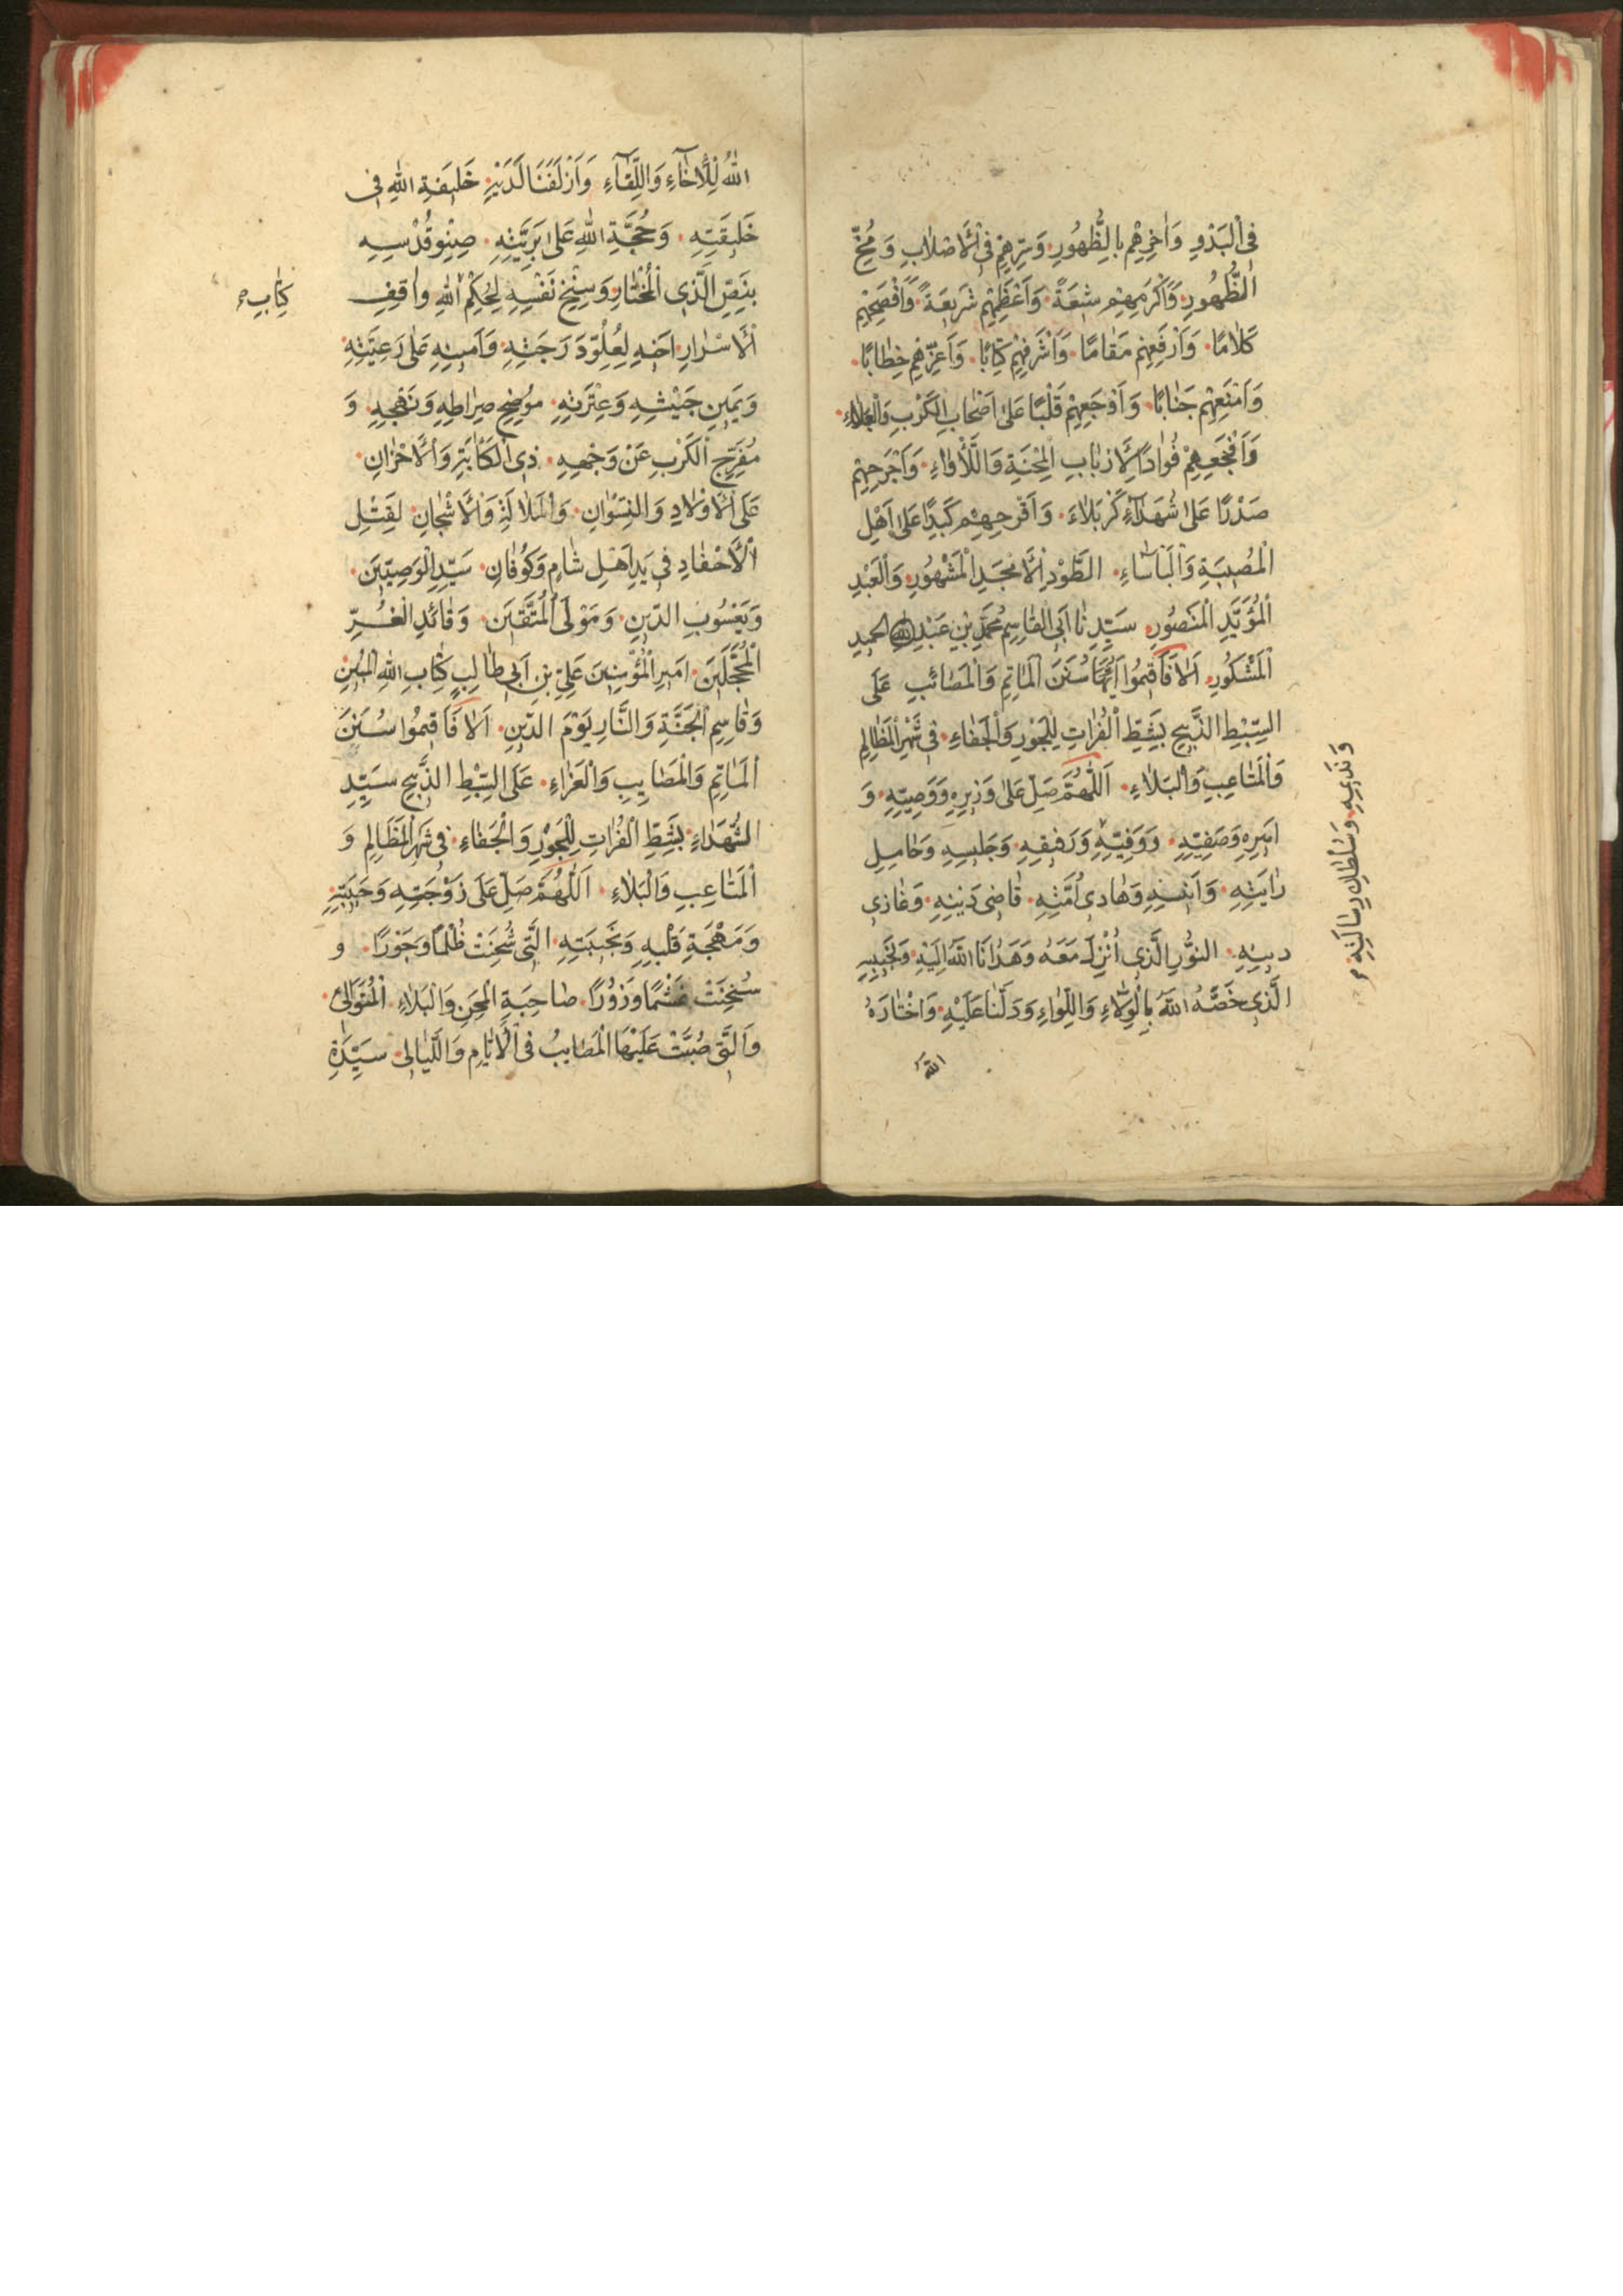 فِى الْبَدْوِ وَاٰخِرِهِمْ بِالظُّهُورِ وَسِرِّهِمْ فِى الْاَصْلَابِ وَمُخِّ
الظُّهُورِ وَاَكْرَمِهِمْ شِيعَةً وَاَعْظَمِهِمْ شَرِيعَةً وَاَفْصَحِهِمْ
كَلَامًا وَاَرْفَعِهِمْ مَقَامًا وَاَشْرَفِهِمْ كِتَابًا وَاَعَزِّهِمْ خِطَابًا
وَاَمْنَعِهِمْ جَنَابًا وَاَوْجَعِهِمْ قَلْبًا عَلَى اَصْحَابِ الْكَرْبِ وَالْبَلَاءِ
وَاَفْجَعِهِمْ فُوَادًا لِاَرْبَابِ الْمِحْنَةِ وَاللَّأْوَاءِ وَاَجْرَحِهِمْ
صَدْرًا عَلَى شُهَدَاءِ كَرْبَلَاءَ وَاَقْرَحِهِمْ كَبِدًا عَلَى اَهْلِ
الْمُصِيبَةِ وَالْبَأْسَاءِ الطَّوْدِ الْاَمْجَدِ الْمَشْهُورِ وَالْعَبْدِ
الْمُؤَيَّدِ الْمَنْصُورِ سَيِّدِنَا اَبِى الْقَاسِمِ مُحَمَّدِ بْنِ عَبْدِ اللهِ الحميدِ
الْمَشْكُورِ اَلَا فَاَقِيمُوا سُنَنَ الْمَاتِمِ وَالْمَصَائِبِ عَلَى
السِّبْطِ الذَّبِيحِ بِشَطِّ الْفُرَاتِ لِلْجَوْرِ وَالْجَفَاءِ فِى شَهْرِ الْمَظَالِمِ
وَالْمَتَاعِبِ وَالْبَلَاءِ اَللّٰهُمَّ صَلِّ عَلَى وَزِيرِهِ وَوَصِيِّهِ وَ
اَمِيرِهِ وَصَفِيِّهِ وَوَفِيِّهِ وَرَفِيقِهِ وَجَلِيسِهِ وَحَامِلِ
رَايَتِهِ وَاَنِيسِهِ وَهَادِى اُمَّتِهِ قَاضِى دَيْنِهِ وَغَازِى
دِينِهِ النُّورِ الَّذِى اُنْزِلَ مَعَهُ وَهَدَانَا اللهُ اِلَيْهِ
الَّذِى خَصَّهُ اللهُ بِالْوِلَاءِ وَاللِّوَاءِ وَدَلَّنَا عَلَيْهِ وَاخْتَارَهُ
اللهُ
اللهُ لِلْاِخَاءِ وَاللِّقَاءِ وَاَزْلَفَنَا لَدَيْهِ خَلِيفَةِ اللهِ فِى
خَلِيقَتِهِ وَحُجَّةِ اللهِ عَلَى بَرِيَّتِهِ صِنْوِ قُدْسِهِ
بِنَصِّ الَّذِى الْمُخْتَارِ وَسِنْخِ نَفْسِهِ لِحُكْمِ اللهِ وَاقِفِ
كِتَابِ
الْاَسْرَارِ اَخِيهِ لِعُلُوِّ دَرَجَتِهِ وَاَمِينِهِ عَلَى رَعِيَّتِهِ
وَيَمِينِ جَيْشِهِ وَعِتْرَتِهِ مُوضِحِ صِرَاطِهِ وَنَهْجِهِ وَ
مُفَرِّجِ الْكَرْبِ عَنْ وَجْهِهِ ذِى الْكَأْبَةِ وَالْاَحْزَانِ
عَلَى الْاَوْلَادِ وَالنِّسْوَانِ وَالْمَلَالَةِ وَالْاَشْجَانِ لِقَتْلِ
الْاَحْفَادِ فِى يَدِ اَهْلِ شَامٍ وَكُوفَانِ سَيِّدِ الْوَصِيِّينَ
وَيَعْسُوبِ الدِّينِ وَمَوْلَى الْمُتَّقِينَ وَقَائِدِ الْغُرِّ
الْمُحَجَّلِينَ اَمِيرِ الْمُؤْمِنِينَ عَلِىِّ بْنِ اَبِى طَالِبٍ كِتَابِ اللهِ الْمُبِينِ
وَقَاسِمِ الْجَنَّةِ وَالنَّارِ يَوْمَ الدِّينِ اَلَا فَاَقِيمُوا سُنَنَ
الْمَاتِمِ وَالْمَصَايِبِ وَالْعَزَاءِ عَلَى السِّبْطِ الذَّبِيحِ سَيِّدِ
الشُّهَدَاءِ بِشَطِّ الْفُرَاتِ لِلْجَوْرِ وَالْجَفَاءِ فِى شَهْرِ الْمَظَالِمِ وَ
الْمَتَاعِبِ وَالْبَلَاءِ اَللّٰهُمَّ صَلِّ عَلَى زَوْجَتِهِ وَحَبِيبَتِهِ
وَمُهْجَةِ قَلْبِهِ وَنَجِيبَتِهِ الَّتِى شُحِنَتْ ظُلْمًا وَجَوْرًا وَ
سُخِنَتْ غَشْمًا وَزُورًا صَاحِبَةِ الْمِحَنِ وَالْبَلَاءِ الْمُتَوَالِى
وَالَّتِى صُبَّتْ عَلَيْهَا الْمَصَايِبُ فِى الْاَيَّامِ وَاللَّيَالِى سَيِّدَةِ